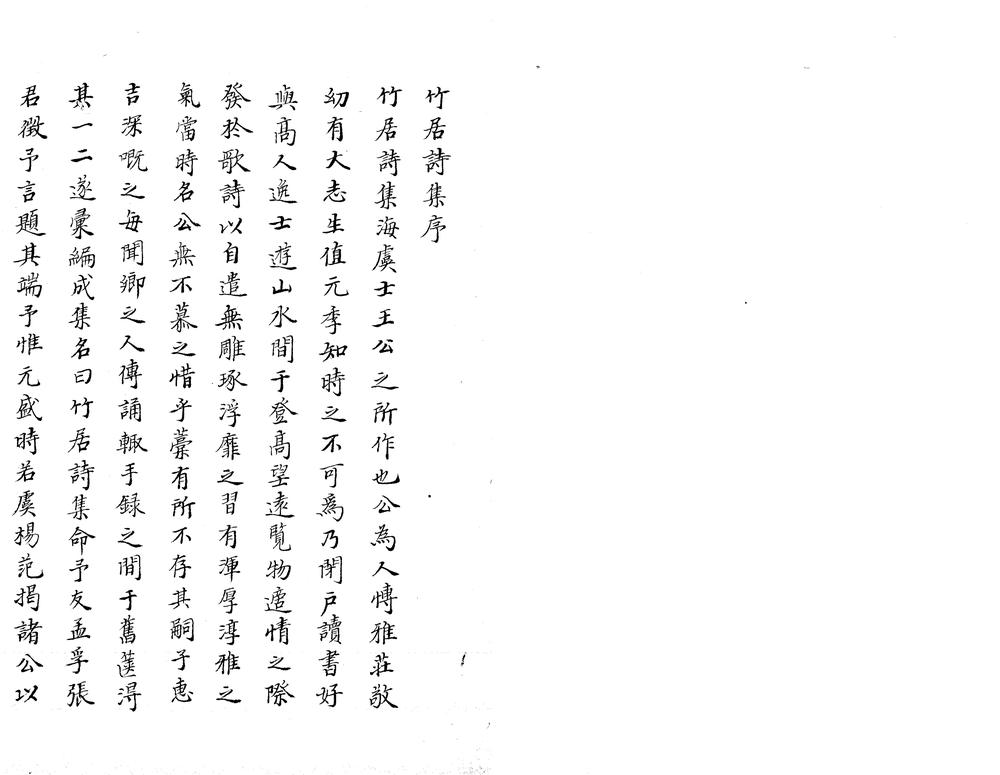 竹居詩集序
竹居詩集海虞士王公之所作也公為人慱雅莊敬
幼有大志生值元季知時之不可爲乃閉戸讀書好
與高人逸士遊山水間于登高望遠覧物適情之際
發於歌詩以自遣無雕琢浮靡之習有渾厚淳雅之
氣當時名公無不慕之惜乎藁有所不存其嗣子恵
吉深嘅之毎聞鄉之人傳誦輙手録之間于舊篋得
其一二遂彙編成集名曰竹居詩集命予友孟孚張
君徴予言題其端予惟元盛時若虞楊范掲諸公以